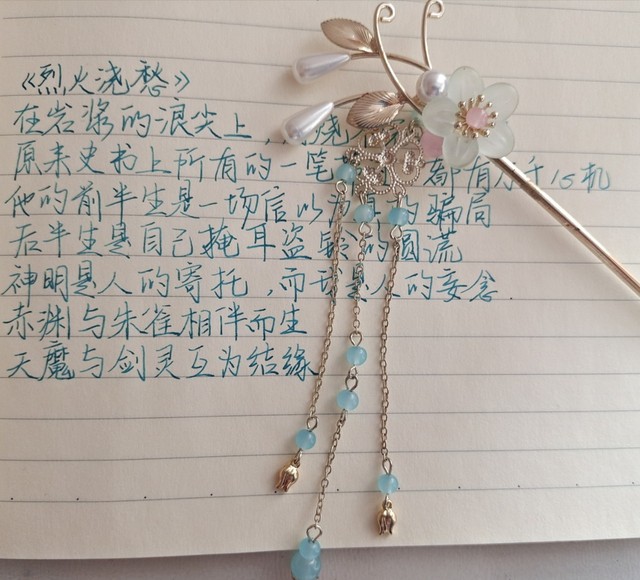 《烈火浇愁》
在岩浆的浪尖上，烧
原来史书上所有的一笔都有万千心机
他的前半生是一场信以为真的骗局
后半生是自己掩耳盗铃的圆谎
神明是人的寄托，而我是人的妄念.
赤渊与朱雀相伴而生
天魔与剑灵互为结缘